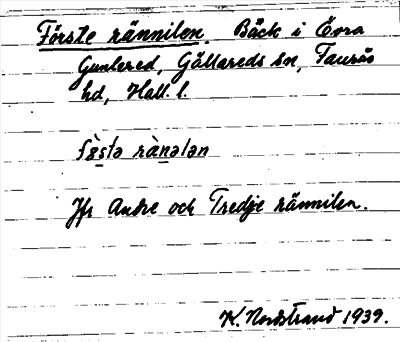 Förste rännilen. Bäck i Övra
Gunlered, Gällareds sn, Faurås
hd, Hall. l.
fø̀stə rànələn
Jfr Andre och Tredje rännilen.
K. Nordstrand 1939.